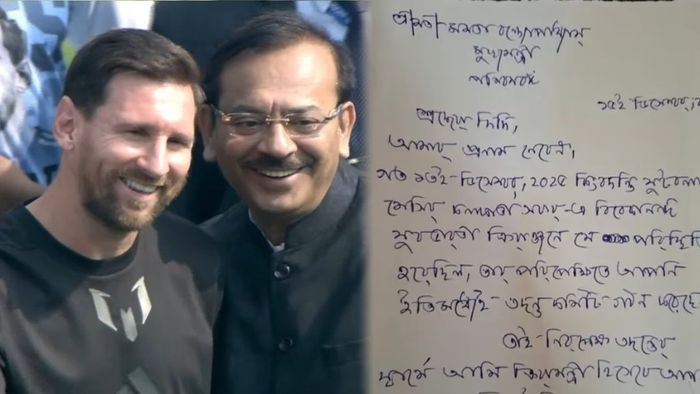 শ্রীমতী মমতা বন্দ্যোপাধ্যায়
মুখ্যমন্ত্রী
পশ্চিমবঙ্গ
১৫ই ডিসেম্বর,
শ্রদ্ধেয় দিদি,
আমার প্রণাম নেবেন,
গত ১৩ই-ডিসেম্বর, 2025 কিংবদন্তি ফুটবলা
মেসির কলকাতা সফর-এ বিবেকানন্দ
যুবভারতী ক্রীড়াঙ্গনে যে পরিস্থিতি
হয়েছিল, তার পরিপ্রেক্ষিতে আপনি
ইতিমধ্যেই তদন্ত কমিটি গঠন করেছে
তাই নিরপেক্ষ তদন্তের
স্বার্থে আমি ক্রীড়ামন্ত্রী হিসেবে আপ